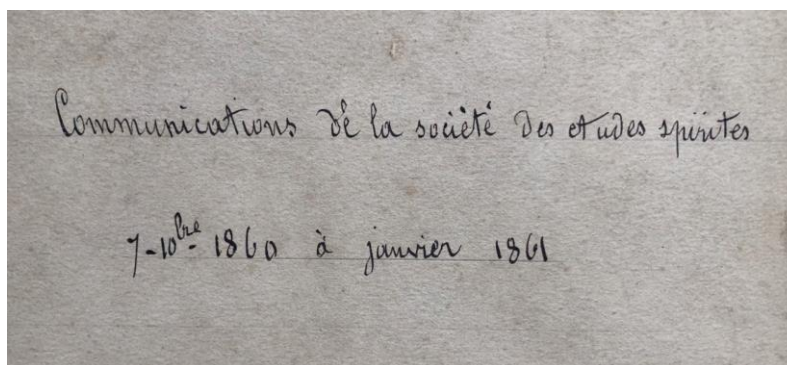 Communications de la société des etudes spirites
7-10bre- 1860 à janvier 1861